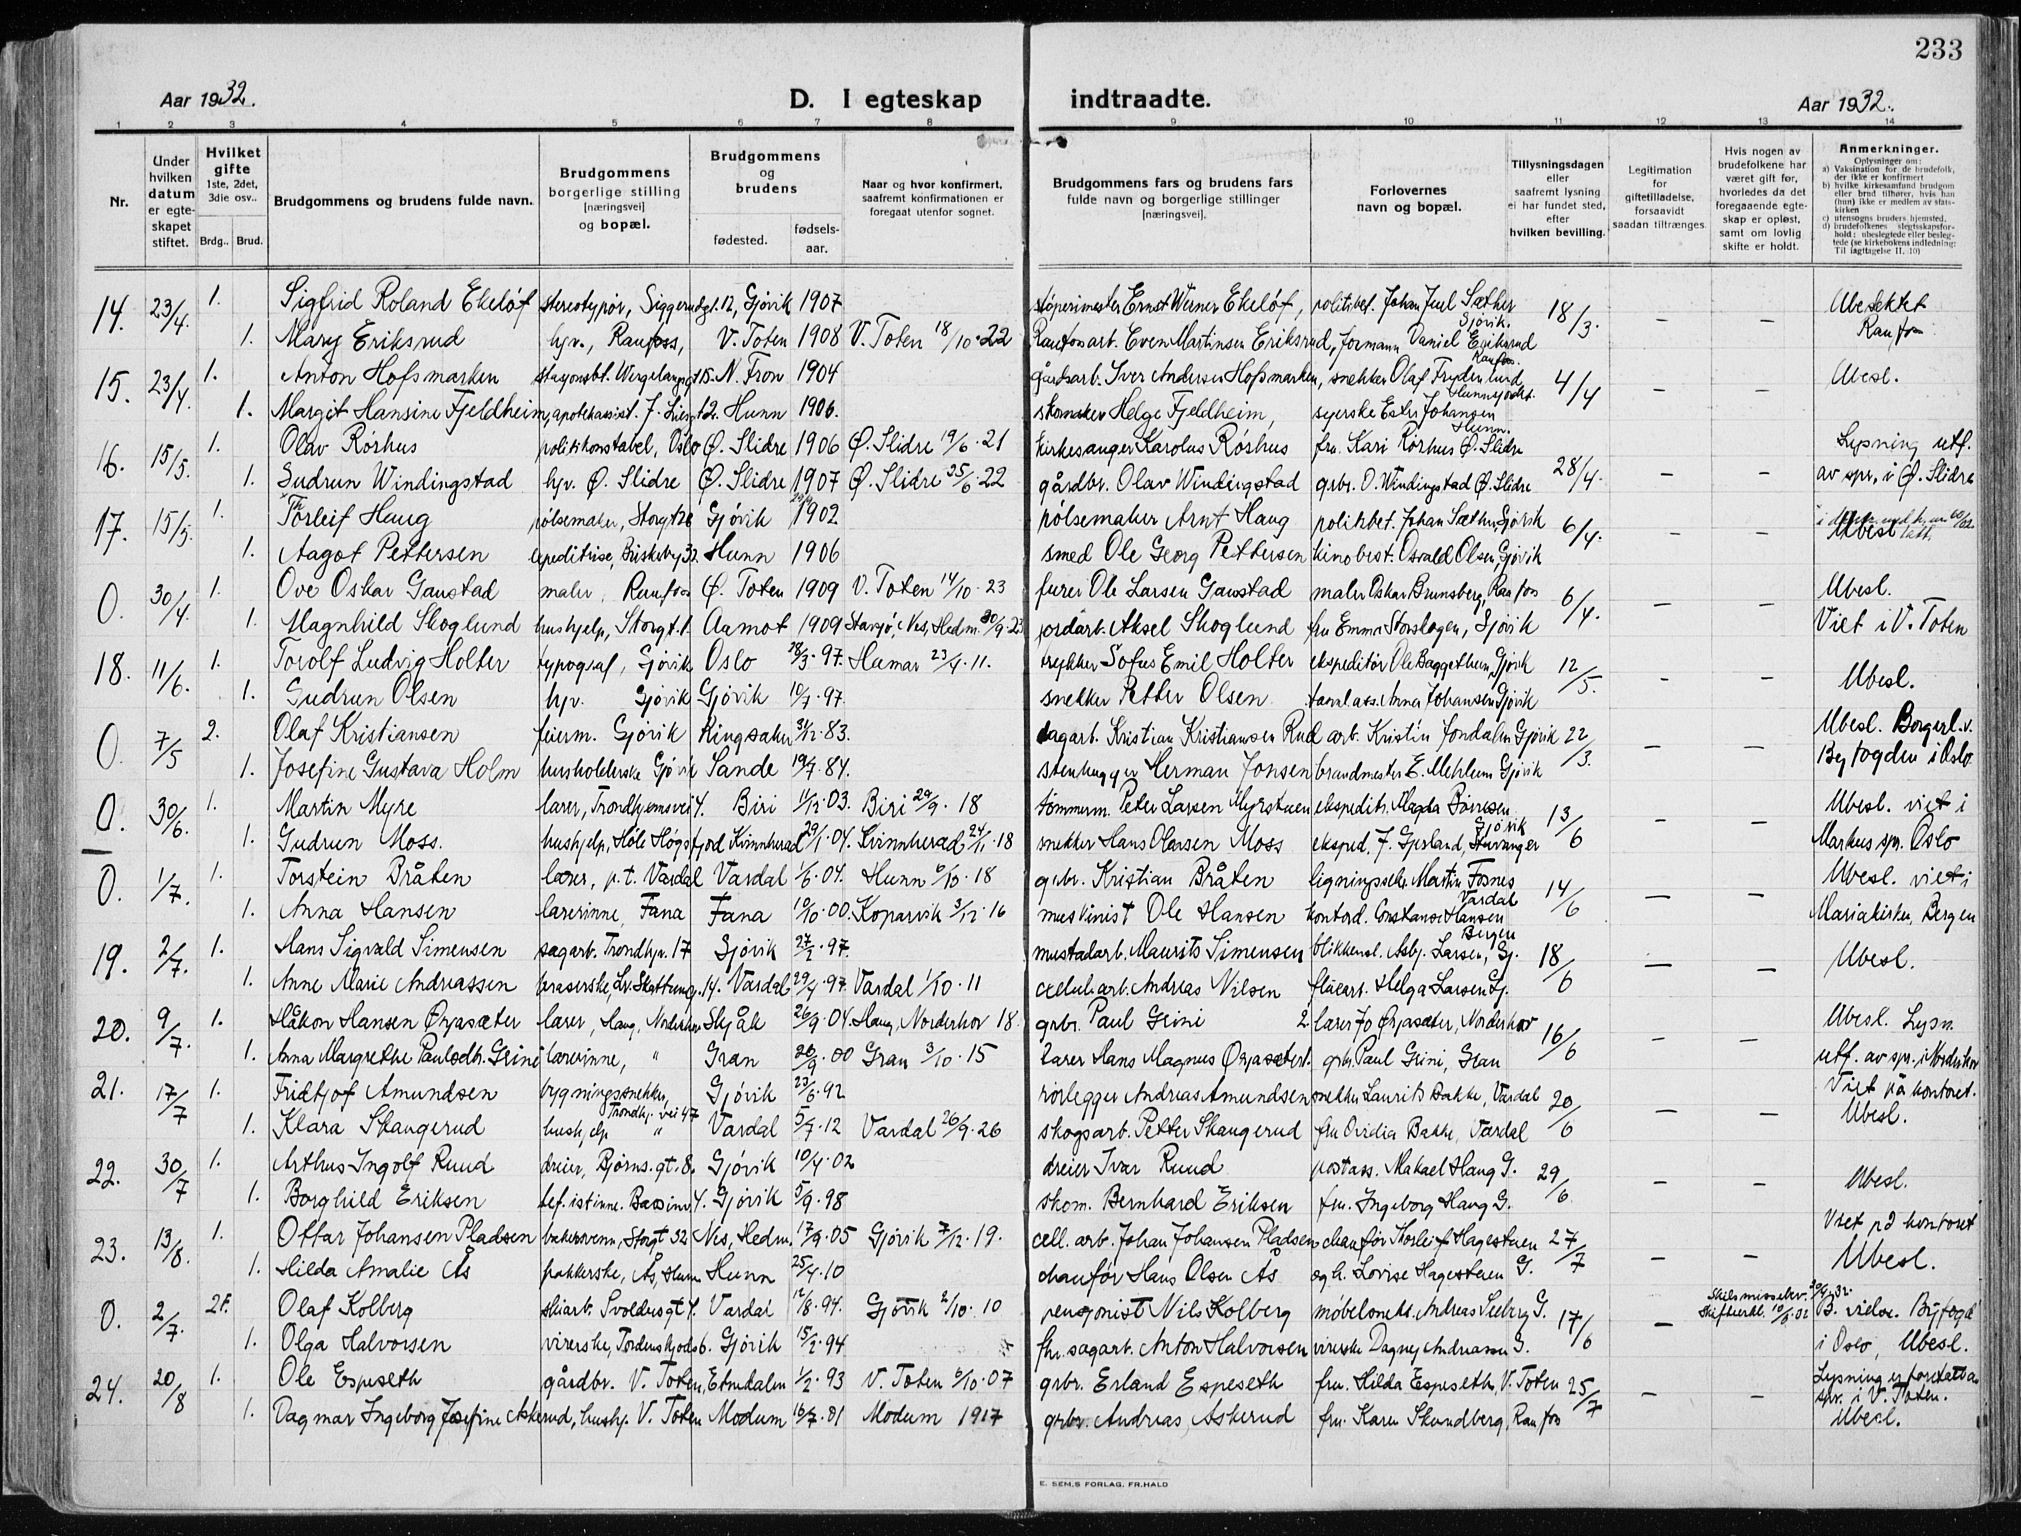 233
Aar 1932.
D. I egteskap indtraadte.
Aar 1932.
1 2 3 4 5 6 7 8 9 10 11 12 13 14
Nr.
Under hvilken datum er egteskapet stiftet.
Hvilket gifte 1ste, 2det, 3die osv..
Brdg.. Brud.
Brudgommens og brudens fulde navn.
Brudgommens borgerlige stilling [næringsvei] og bopæl.
Brudgommens og brudens
fødested. fødselsaar.
Naar og hvor konfirmert, saafremt konfirmationen er foregaat utenfor sognet.
Brudgommens fars og brudens fars fulde navn og borgerlige stillinger [næringsvei].
Forlovernes navn og bopæl.
Tillysningsdagen eller saafremt lysning ei har fundet sted, efter hvilken bevilling.
Legitimation for giftetilladelse, forsaavidt saadan tiltrænges.
Hvis nogen av brudefolkene har været gift før, hvorledes da det foregaaende egteskap er opløst, samt om lovlig skifte er holdt.
Anmerkninger.
Oplysninger om:
a) Vaksination for de brudefolk, der ikke er konfirmert
b) hvilke kirkesamfund brudgom eller brud tilhører, hvis han (hun) ikke er medlem av statskirken
c) utensogns bruders hjemsted.
d) brudefolkenes slegtsskapsforhold: ubeslegtede eller beslegtede (se kirkebokens indledning: Til iagttagelse II. 10)
14. 23/4. 1. Sigfrid Roland Ekelöf stereotypør, Siggerudgt. 12, Gjøvik 1907 støperimester Ernst Werner Ekelöf, politibet. Johan Juul Sæther Gjøvik. 18/3. – – Ubeslektet
1. Mary Eriksrud hjv., Raufoss, V. Toten 1908 V. Toten 18/10.22 Raufossarb. Even Martinsen Eriksrud, formann Daniel Eriksrud Raufoss Raufoss
15. 23/4. 1. Anton Hofsmarken stasjonsbt. Wergelandsgt 15. N. Fron 1904 gårdsarb. Iver Andersen Hofsmarken, snekker Olaf Frydenlund 4/4 – – Ubesl.
1. Margit Hansine Fjeldheim, apotekassist. J. Liesgt 2. Hunn 1906. skomaker Helge Fjeldheim, syerske Ester Johansen Hunn.
16. 15/5. 1. Olav Rørhus politikonstabel, Oslo Ø. Slidre 1906 Ø. Slidre 19/6.21 kirkesanger Karolus Rørhus fru Kari Rørhus Ø. Slidre 28/4. – – Lysning utf.
1. Gudrun Windingstad hjv. Ø. Slidre Ø. Slidre 1907 Ø. Slidre 25/6.22 gårdbr. Olav Windingstad grbr. O. Windingstad Ø. Slidre av spr. i Ø. Slidre
17. 15/5. 1. Thorleif Haug pølsemaker, Storgt 26 Gjøvik 1902 pølsemaker Arnt Haug politibet. Johan Sæther, Gjøvik 6/4. – – Ubesl.
1. Aagot Pettersen expeditrise, Briskeby 32. Hunn 1906 smed Ole Georg Pettersen kinobest. Osvald Olsen, Gjøvik
0. 30/4. 1. Ove Oskar Gaustad maler, Raufoss Ø. Toten 1909 V. Toten 14/10.23 furer Ole Larsen Gaustad maler Oskar Brunsberg, Raufoss 6/4. – – Ubesl.
1. Magnhild Skoglund hushjelp, Storgt. 1. Aamot 1909 Stavsjø, Nes, Hedm. 30/9.23 jordarb. Aksel Skoglund fru Emma Storslagen, Gjøvik Viet i V. Toten
18. 11/6. 1. Torolf Ludvig Holter typograf, Gjøvik Oslo 28/3.97. Hamar 23/4.11. trykker Sofus Emil Holter ekspeditør Ole Baggetheun, Gjøvik 12/5. – – Ubesl.
1. Gudrun Olsen hjv. Gjøvik Gjøvik 10/7.97. snekker Petter Olsen tannl.ass. Anna Johansen Gjøvik
0. 7/5 2. Olaf Kristiansen feierm. Gjøvik Ringsaker 31/12.83. sagarb. Kristian Kristiansen Rud arb. Kristin Jondalen Gjøvik 22/3. – – Ubesl. Borgerl. v.
1. Josefine Gustava Holm husholderske Gjøvik Sande 19/7.84. stenhugger Herman Jonsen brandmester E. Mehlum Gjøvik Byfogden i Oslo
0. 30/6. 1. Martin Myre lærer, Trondhjemsvei 4. Biri 11/12.03. Biri 29/9.18 tømmerm. Peter Larsen Myrstuen ekspeditr. Magda Børresen Gjøvik 13/6 – – Ubesl. viet i
1. Gudrun Moss. hushjelp, Høle Høgsfjord Kvinnherad 29/1.04. Kvinnherad 24/11.18 snekker Hans Olsen Moss eksped. J. Gjerland, Stavanger Markus spr. Oslo
0. 1/7. 1. Torstein Bråten lærer, p.t. Vardal Vardal 1/6.04. Hunn 6/10.18 grbr. Kristian Bråten ligningssekr. Martin Fosnes Vardal 14/6 – – Ubesl. viet i
1. Anna Hansen lærerinne, Fana Fana 10/10.00. Kopervik 3/12.16 maskinist Ole Hansen kontord. Constanse Hansen Bergen Mariakirken, Bergen
19. 2/7. 1. Hans Sigvald Simensen sagarb. Trondhjv. 17 Gjøvik 27/2.97. mustadarb. Maurits Simensen blikkensl. Asbj. Larsen, Gj. 18/6 – – Ubesl.
1. Anne Marie Andreassen Skattumgt. 14. Vardal 29/4.97. Vardal 1/10.11 cellul.arb. Andreas Nilsen Helga Larsen Gj.
20. 9/7. 1. Håkon Hansen Øyasæter lærer, Haug, Norderhov Skjåk 26/9.04. Haug, Norderhov 18. grbr. Paul Grini 2. lærer Jo Øyasæter, Norderhov 16/6 – – Ubesl. Lysn.
1. Anna Margrethe Paulsdtr. Grini lærerinne, " Gran 20/9.00 Gran 3/10.15 lærer Hans Magnus Øyasæter 1. grbr. Paul Grini, Gran utf. av spr. i Norderhov
21. 17/7 1. Fridtjof Amundsen bygningssnekker, Trondhj. vei 47 Gjøvik 23/6.92 rørlegger Andreas Amundsen snekker Laurits Bakke, Vardal 20/6 – – Viet på kontoret.
1. Klara Skaugerud hushjelp " Vardal 5/7.12 Vardal 26/9.26 skogsarb. Petter Skaugerud fru Ovidia Bakke, Vardal Ubesl.
22. 30/7 1. Arthur Ingolf Ruud dreier, Bjørns.gt. 8. Gjøvik 10/4.02 dreier Ivar Ruud postass. Mikael Haug G. 29/6. – – Ubesl.
1. Borghild Eriksen tef.istinne. 4. Gjøvik 5/9.98 skom. Bernhard Eriksen fru. Ingeborg Haug G.
23. 13/8. 1. Ottar Johansen Pladsen bakersvenn, Storgt 32 Nes, Hedm. 17/9.05 Gjøvik 7/12.19. cell. arb. Johan Johansen Pladsen chauffør Thorleif Hagestuen 27/7 – – Viet på kontoret
1. Hilda Amalie Ås pakkerske, Ås, Hunn Hunn 25/4.10 chauför Hans Olsen Ås og h. Lovise Hagestuen G. Ubesl.
0. 2/7. 2f. Olaf Kolberg skiarb. Svoldersgt 4. Vardal 12/8.94. Gjøvik 2/10.10 pensjonist Nils Kolberg møbelsnekk. Andreas Seeberg G. 17/6 – Skilsmissebev. 29/4.32. Skifteerkl. 10/5.32 B. vielse. Byfogd
1. Olga Halvorsen virerske, Tordenskjolds 6. Gjøvik 15/2.94 fhv. sagarb. Anton Halvorsen virerske Dagny Andreassen G. i Oslo, Ubesl.
24. 20/8 1. Ole Espeseth gårdbr. V. Toten, Etnedalen 1/2.93 V. Toten 6/10.07 grbr. Erland Espeseth fru. Hilda Espeseth, V. Toten 25/7 – – Lysning er foretatt av
1. Dagmar Ingeborg Josefine Askerud, hushj. V. Toten Modum 16/7.01 Modum 1917 grbr. Andreas Askerud fru. Karen Skundberg, Raufoss spr. i V. Toten. Ubesl.
E. SEM.S FORLAG, FR.HALD